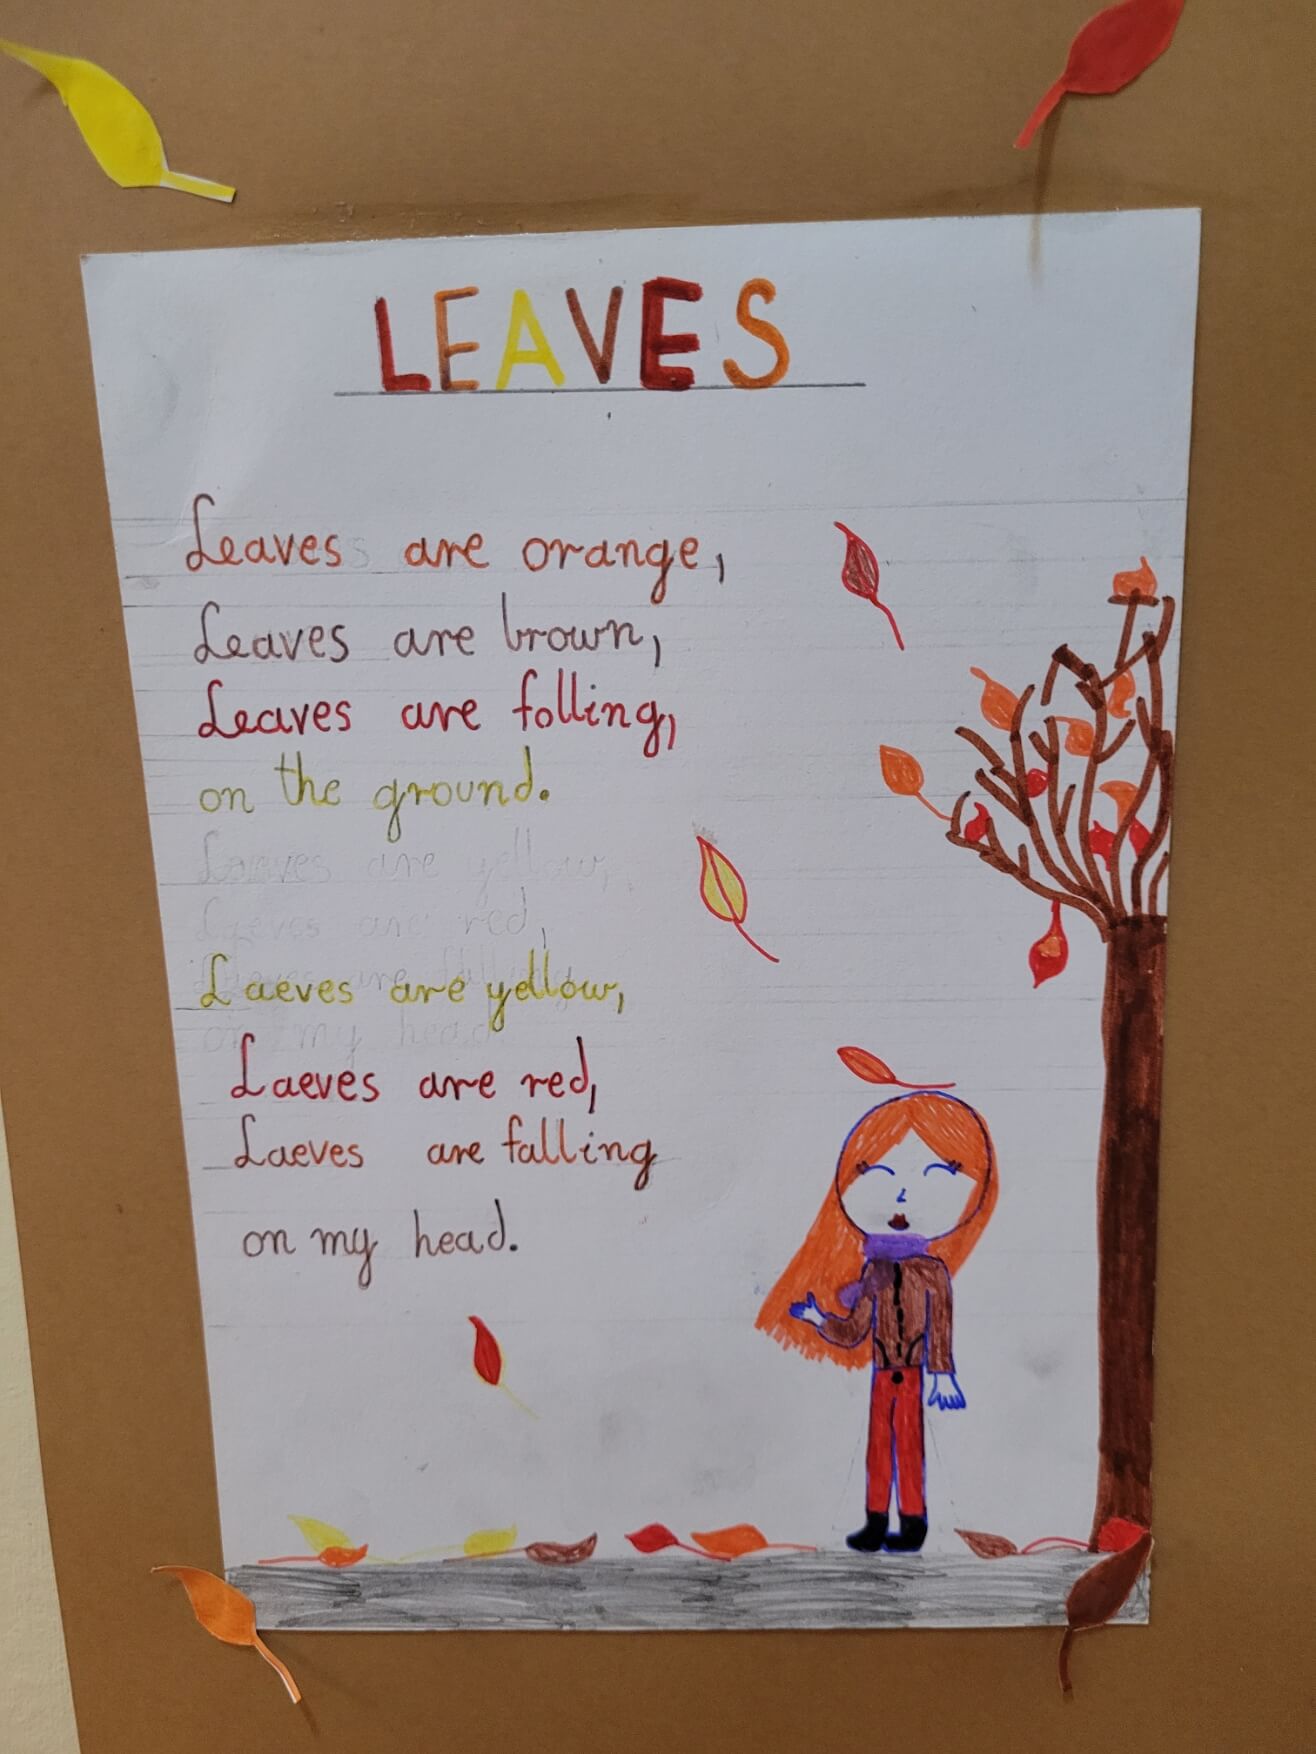 LEAVES
Leaves are orange,
Leaves are brown,
Leaves are folling,
on the ground.
Laeves are yellow,
Laeves are red,
Laeves are yellow,
Laeves are red,
Laeves are falling
on my head.